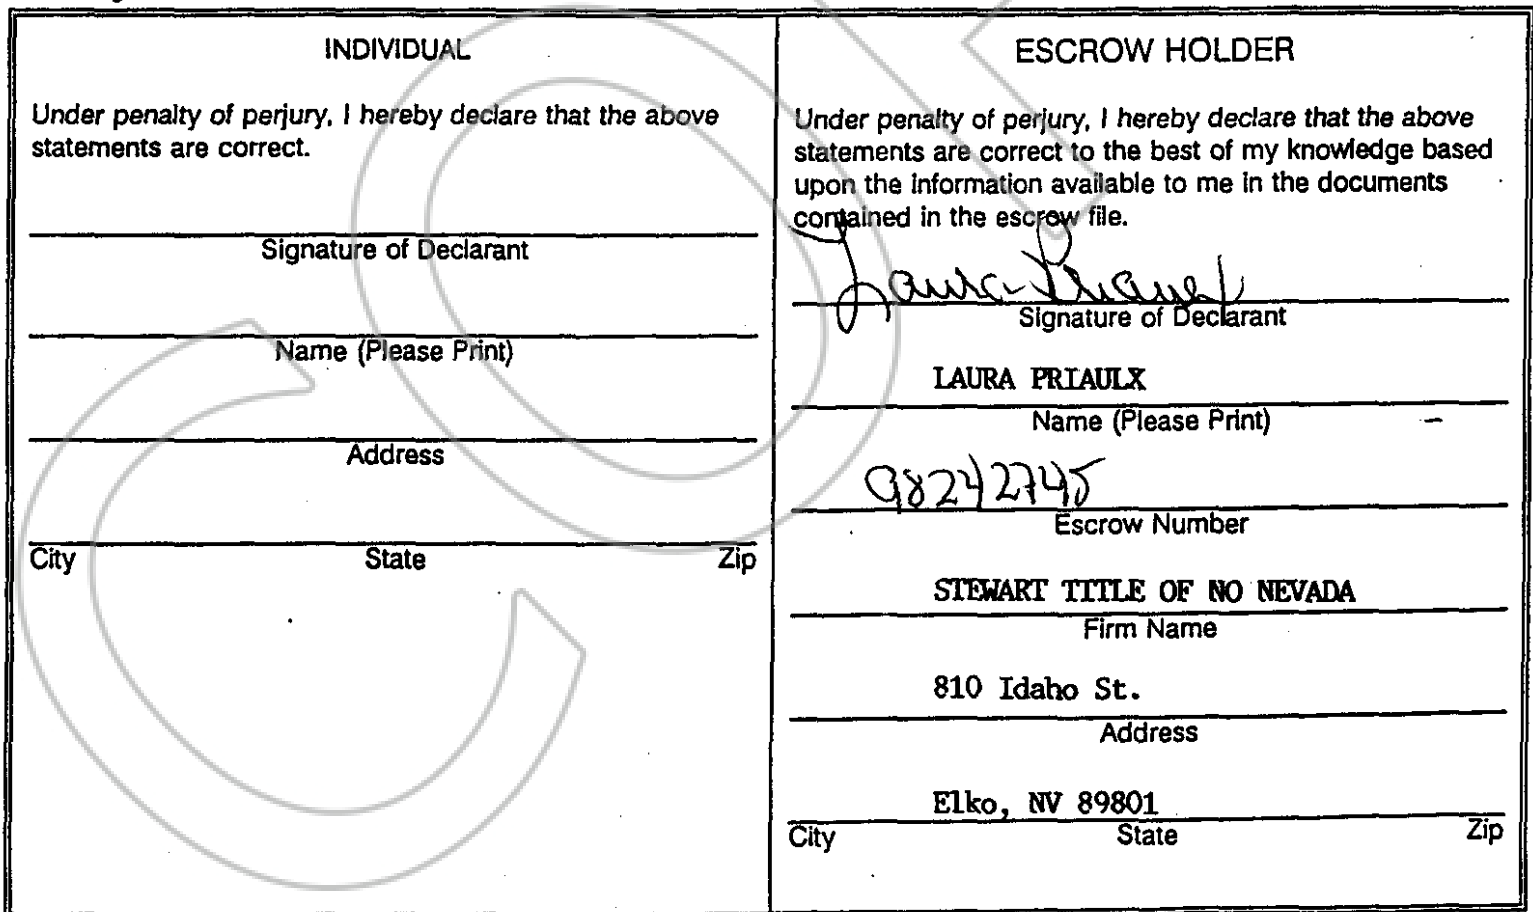 INDIVIDUAL
Under penalty of perjury, I hereby declare that the above
statements are correct.
Signature of Declarant
Name (Please Print)
Address
City State Zip
ESCROW HOLDER
Under penalty of perjury, I hereby declare that the above
statements are correct to the best of my knowledge based
upon the information available to me in the documents
contained in the escrow file.
Laura Priaulx
Signature of Declarant
LAURA PRIAULX
Name (Please Print)
98242745
Escrow Number
STEWART TITLE OF NO NEVADA
Firm Name
810 Idaho St.
Address
Elko, NV 89801
City State Zip